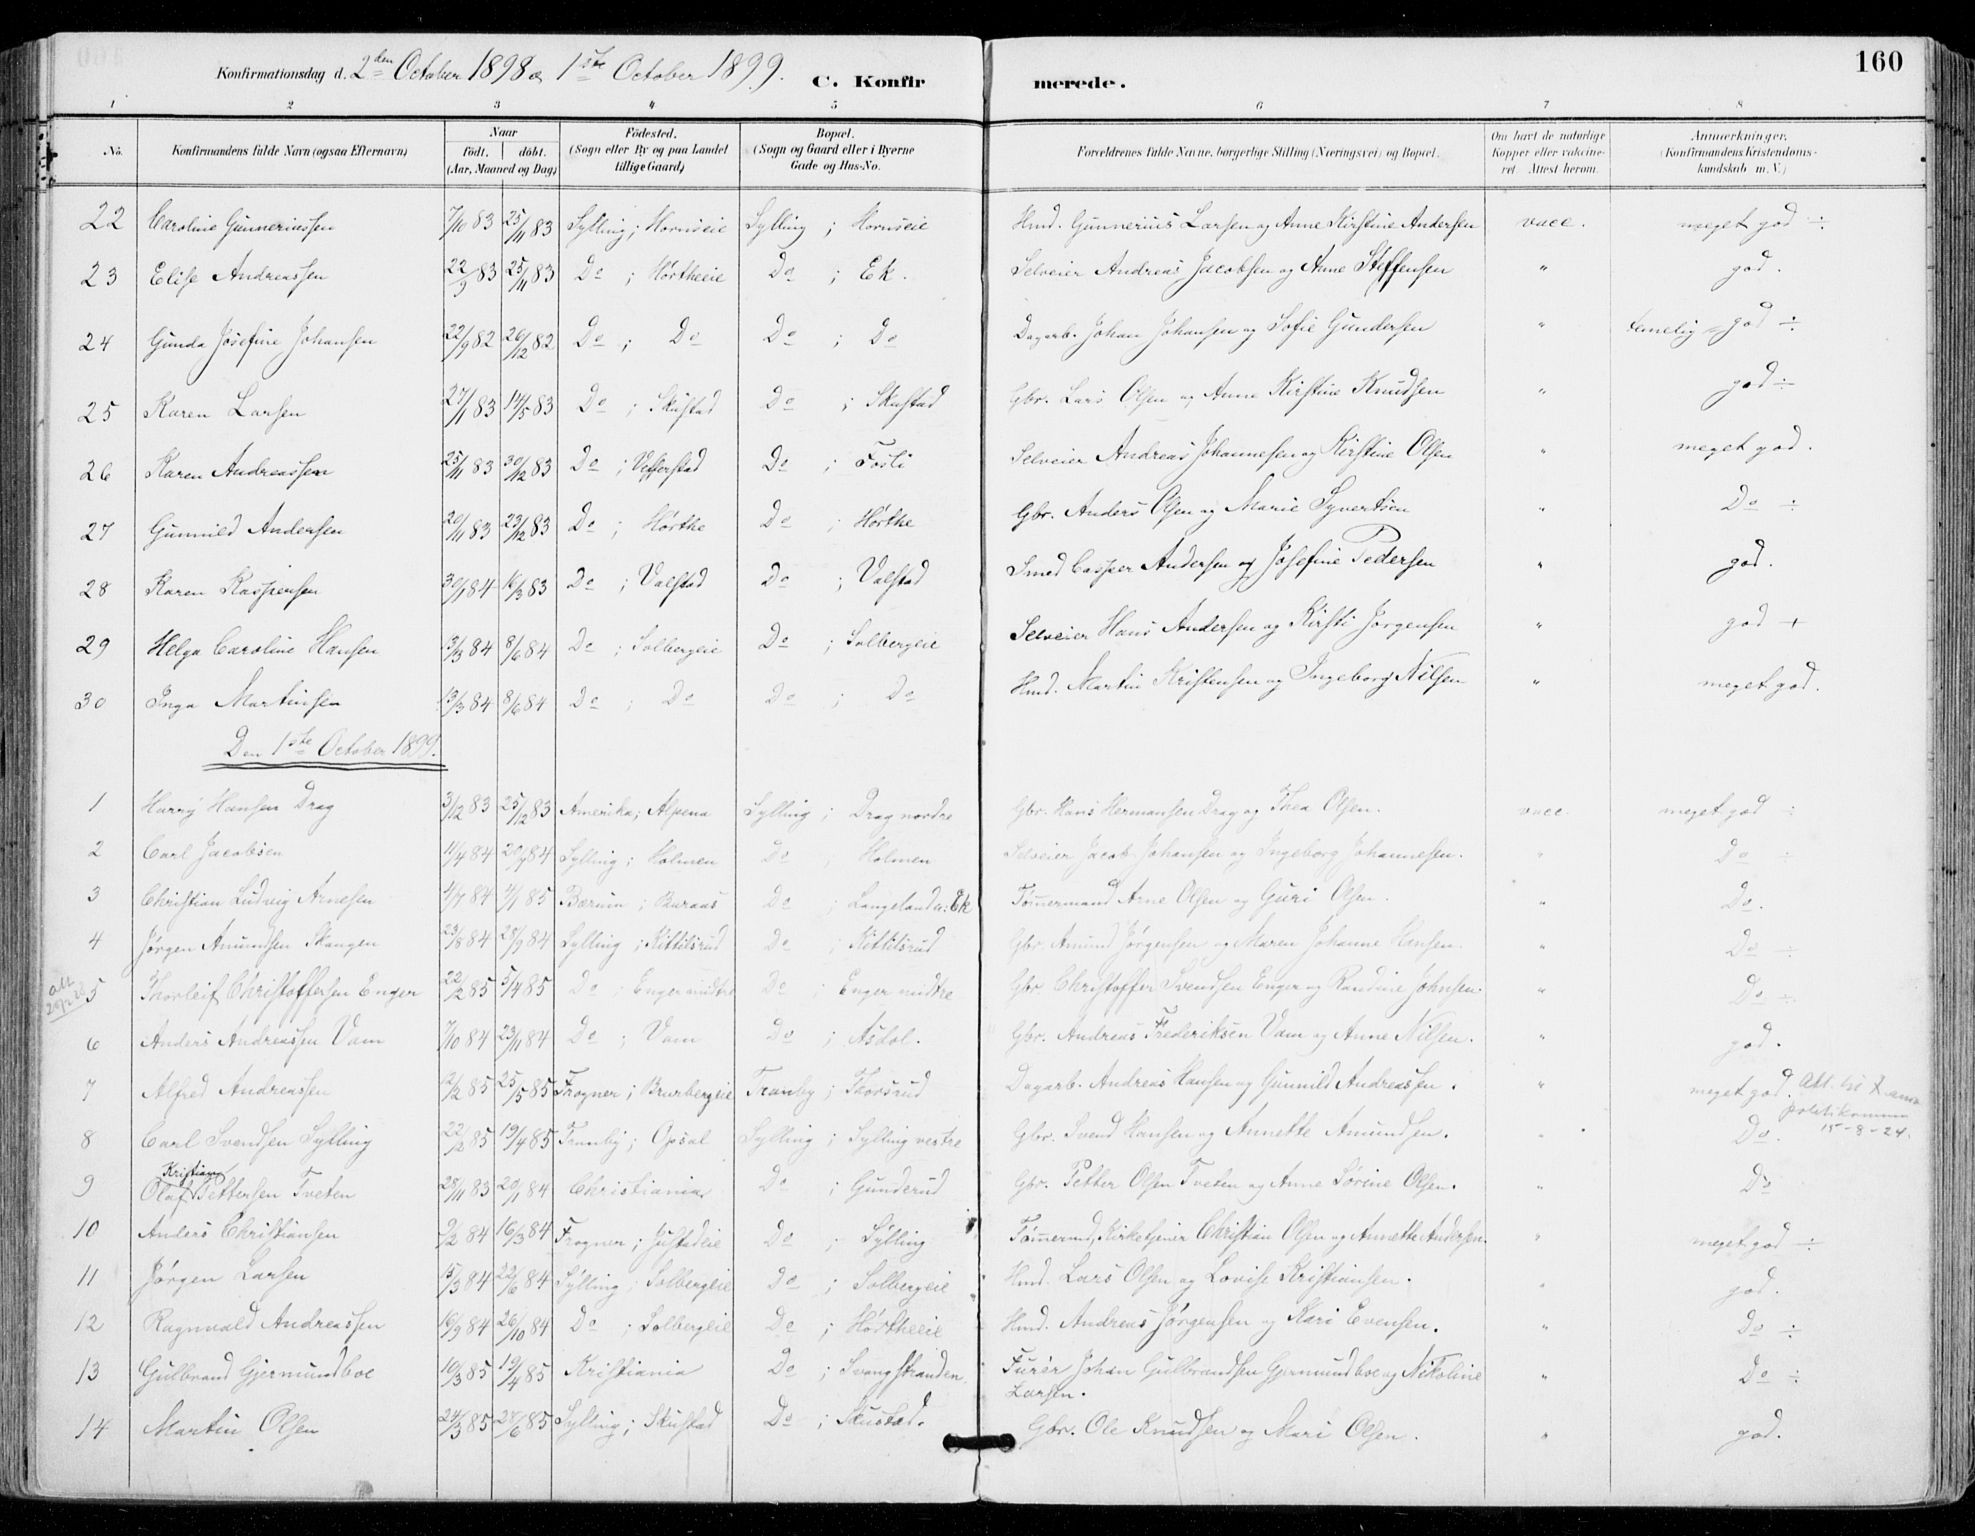 160
Konfirmationsdag d. 2den October 1898 og 1ste October 1899.
C. Konfirmerede.
1 2 3 4 5 6 7 8
No. Konfirmandens fulde Navn (ogsaa Efternavn) Naar født. døbt. (Aar, Maaned og Dag) Födested. (Sogn eller By og paa Landet tillige Gaard) Bopæl. (Sogn og Gaard eller i Byerne Gade og Hus-No. Forældrenes fulde Navne, borgerlige Stilling (Næringsvei) og Bopæl. Om havt de naturlige Kopper eller vaccineret Attest herom. Anmærkninger, (Konfirmandens Kristendomskundskab m. V.)
22 Caroline Gunneriussen 7/10 83 25/11 83 Sylling; Hornseie Sylling; Hornseie Hmd. Gunnerius Larsen og Anne Kirstine Andersen vacc. meget god ÷
23 Elise Andreassen 22/9 83 25/11 83 Do; Hørtheeie Do; Ek. Selveier Andreas Jacobsen og Anne Steffensen " god.
24 Gunda Josefine Johansen 22/9 82 26/12 82 Do; Do Do; Do Dagarb. Johan Johansen og Sofie Gundersen " temelig god ÷
25 Karen Larsen 27/1 83 14/5 83 Do; Skustad Do; Skustad Gbr. Lars Olsen og Anne Kirstine Knudsen " god ÷
26 Karen Andreassen 25/11 83 30/12 83 Do; Vefferstad Do; Fosli Selveier Andreas Johannesen og Kirstine Olsen " meget god.
27 Gunnild Andersen 20/11 83 23/12 83 Do; Hørthe Do; Hørthe Gbr. Anders Olsen og Marie Syvertsen " Do ÷
28 Karen Kaspersen 30/1 84 16/3 83 Do; Valstad Do; Valstad Smed Casper Andersen og Josefine Pedersen " god.
29 Helga Caroline Hansen 13/3 84 8/6 84 Do; Solbergeie Do; Solbergeie Selveier Hans Andersen og Kirsti Jørgensen " god +
30 Inga Martinsen 13/3 84 8/6 84 Do; Do Do; Do Hmd. Martin Kristensen og Ingeborg Nilsen " meget god.
Den 1ste October 1899.
1 Harry Hansen Drag 3/12 83 25/12 83 Amerika; Alpena Sylling; Drag nordre Gbr. Hans Hermansen Drag og Thea Olsen. vacc. meget god ÷
2 Carl Jacobsen 11/4 84 20/7 84 Sylling; Holmen Do; Holmen Selveier Jacob Johansen og Ingeborg Johannesen. " Do ÷
3 Christian Ludvig Arnesen 4/7 84 4/1 85 Bærum; Buraas Do; Langeland u: Ek Tømmermand Arne Olsen og Guri Olsen. " Do.
4 Jørgen Amundsen Skangen 23/8 84 28/9 84 Sylling; Kittilsrud Do; Kittilsrud Gbr. Amund Jørgensen og Maren Johanne Hansen. " Do ÷
5 Thorleif Christoffersen Enger 22/2 85 5/4 85 Do; Enger midtre Do; Enger midtre Gbr. Christoffer Svendsen Enger og Randine Johnsen. " Do ÷
6 Anders Andreassen Vam 7/10 84 23/11 84 Do; Vam Do; Asdøl. Gbr. Andreas Frederiksen Vam og Anne Nilsen. " god.
7 Alfred Andreassen 12/2 85 25/5 85 Frogner; Brurbergeie Tranby; Thorsrud Dagarb. Andreas Hansen og Gunnild Andreassen. " meget god. Att. til politikammer 15-8-24.
8 Carl Svendsen Sylling 22/2 85 19/4 85 Tranby; Opsal Sylling; Sylling vestre Gbr. Svend Hansen og Annette Amundsen. " Do.
9 Olaf Kristian Pettersen Tveten 28/11 83 20/1 84 Christiania Do; Gunderud Gbr. Petter Olsen Tveten og Anne Sørine Olsen. " Do
10 Anders Christiansen 9/2 84 16/3 84 Frogner; Justadeie Do; Sylling Tømrermd, Kirketjener Christian Olsen og Annette Andersen. " meget god ÷
11 Jørgen Larsen 15/3 84 22/6 84 Sylling; Solbergeie Do; Solbergeie Hmd. Lars Olsen og Lovise Kristiansen. " god.
12 Ragnvald Andreassen 16/9 84 26/10 84 Do; Solbergeie Do; Hørtheeie Hmd. Andreas Jørgensen og Kari Evensen. " Do ÷
13 Gulbrand Gjermundboe 10/3 85 19/4 85 Kristiania Do; Svangstranden. Furér Johan Gulbrandsen Gjermundboe og Nikoline Larsen. " Do ÷
14 Martin Olsen 24/3 85 28/6 85 Sylling; Skustad Do; Skustad. Gbr. Ole Knudsen og Mari Olsen. " god.